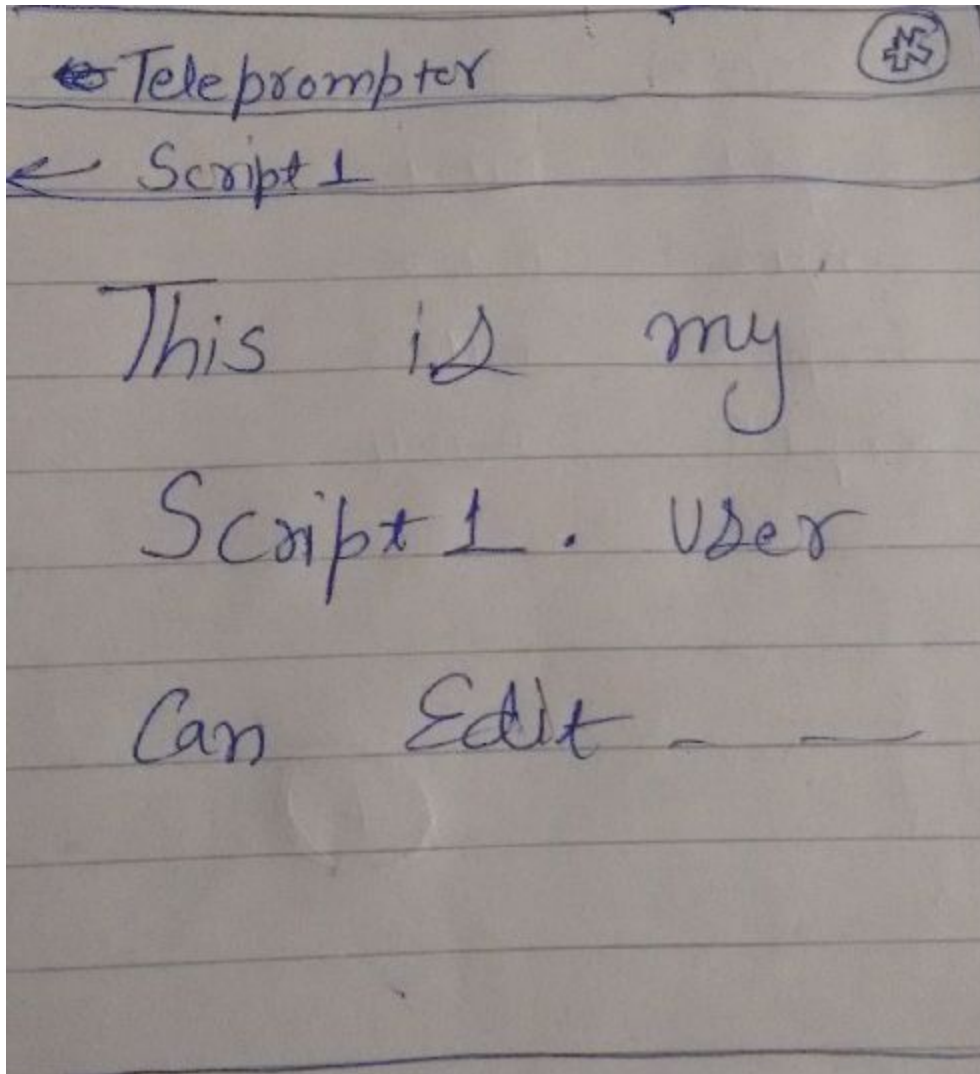 Teleprompter
← Script 1
This is my
Script 1. User
Can Edit - —